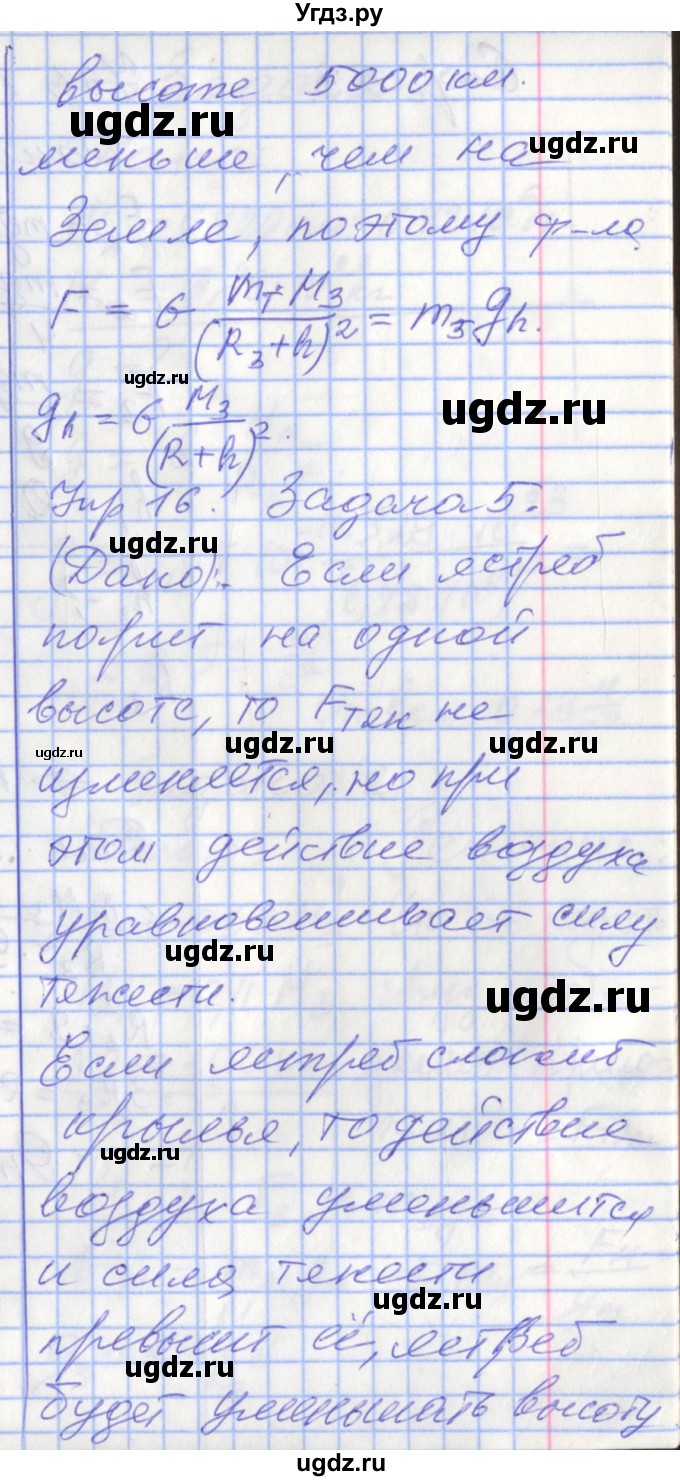 Угдз.ру
высоте 5000 км.
меньше, чем на
Земле, поэтому ф-ла
F = G m_T M_З / (R_З + h)² = m_З g_h.
g_h = G M_З / (R + h)².
Упр 16. Задача 5.
(Дано):. Если ястреб
парит на одной
высоте, то Fтяж не
изменяется, но при
этом действие воздуха
уравновешивает силу
тяжести.
Если ястреб сложит
крылья, то действие
воздуха уменьшится
и сила тяжести
превысит её, ястреб
будет уменьшать высоту
ugdz.ru
ugdz.ru
ugdz.ru
ugdz.ru
ugdz.ru
ugdz.ru
ugdz.ru
ugdz.ru
ugdz.ru
ugdz.ru
ugdz.ru
ugdz.ru
ugdz.ru
ugdz.ru